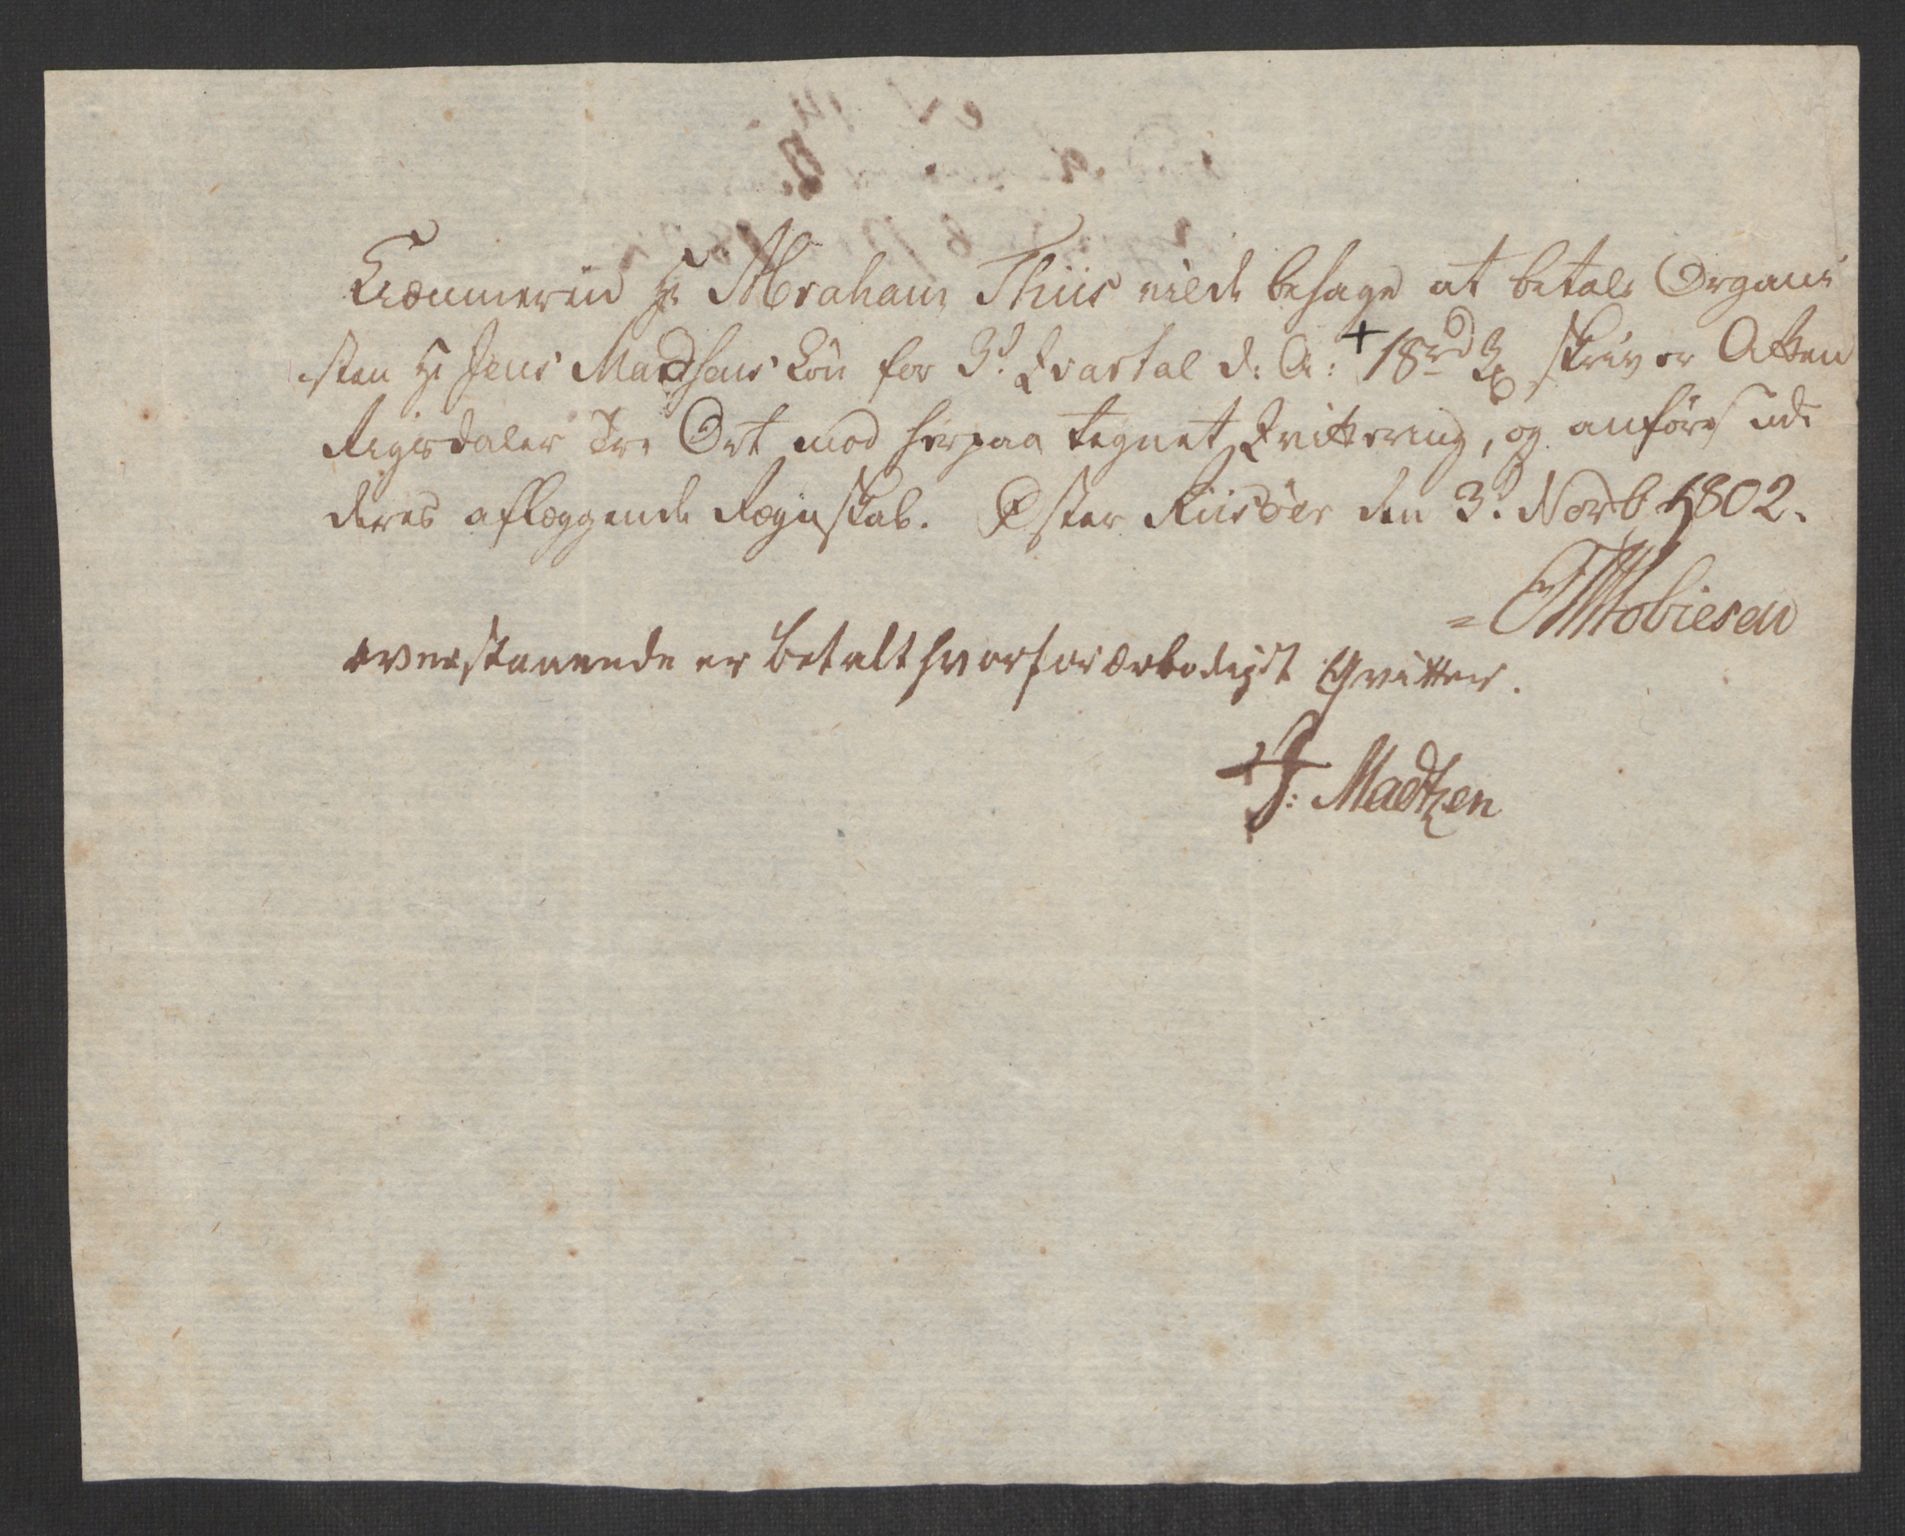 Kiæmmeren Hr Abraham Thiis vilde behage at betale Organi
sten Hr Jens Madsens Løn for 3d Qvartal d: A: + 18 rd 3 skriver Atten
Rigsdaler Tre Ort mod herpaa tegnet Qvittering, og anføres udi
deres aflæggende Regnskab. Øster Riisøer den 3d Novb 1802.
Tobiesen
overstaaende er betalt hvorfor ærbødigst Qvitter.
J: Madtzen